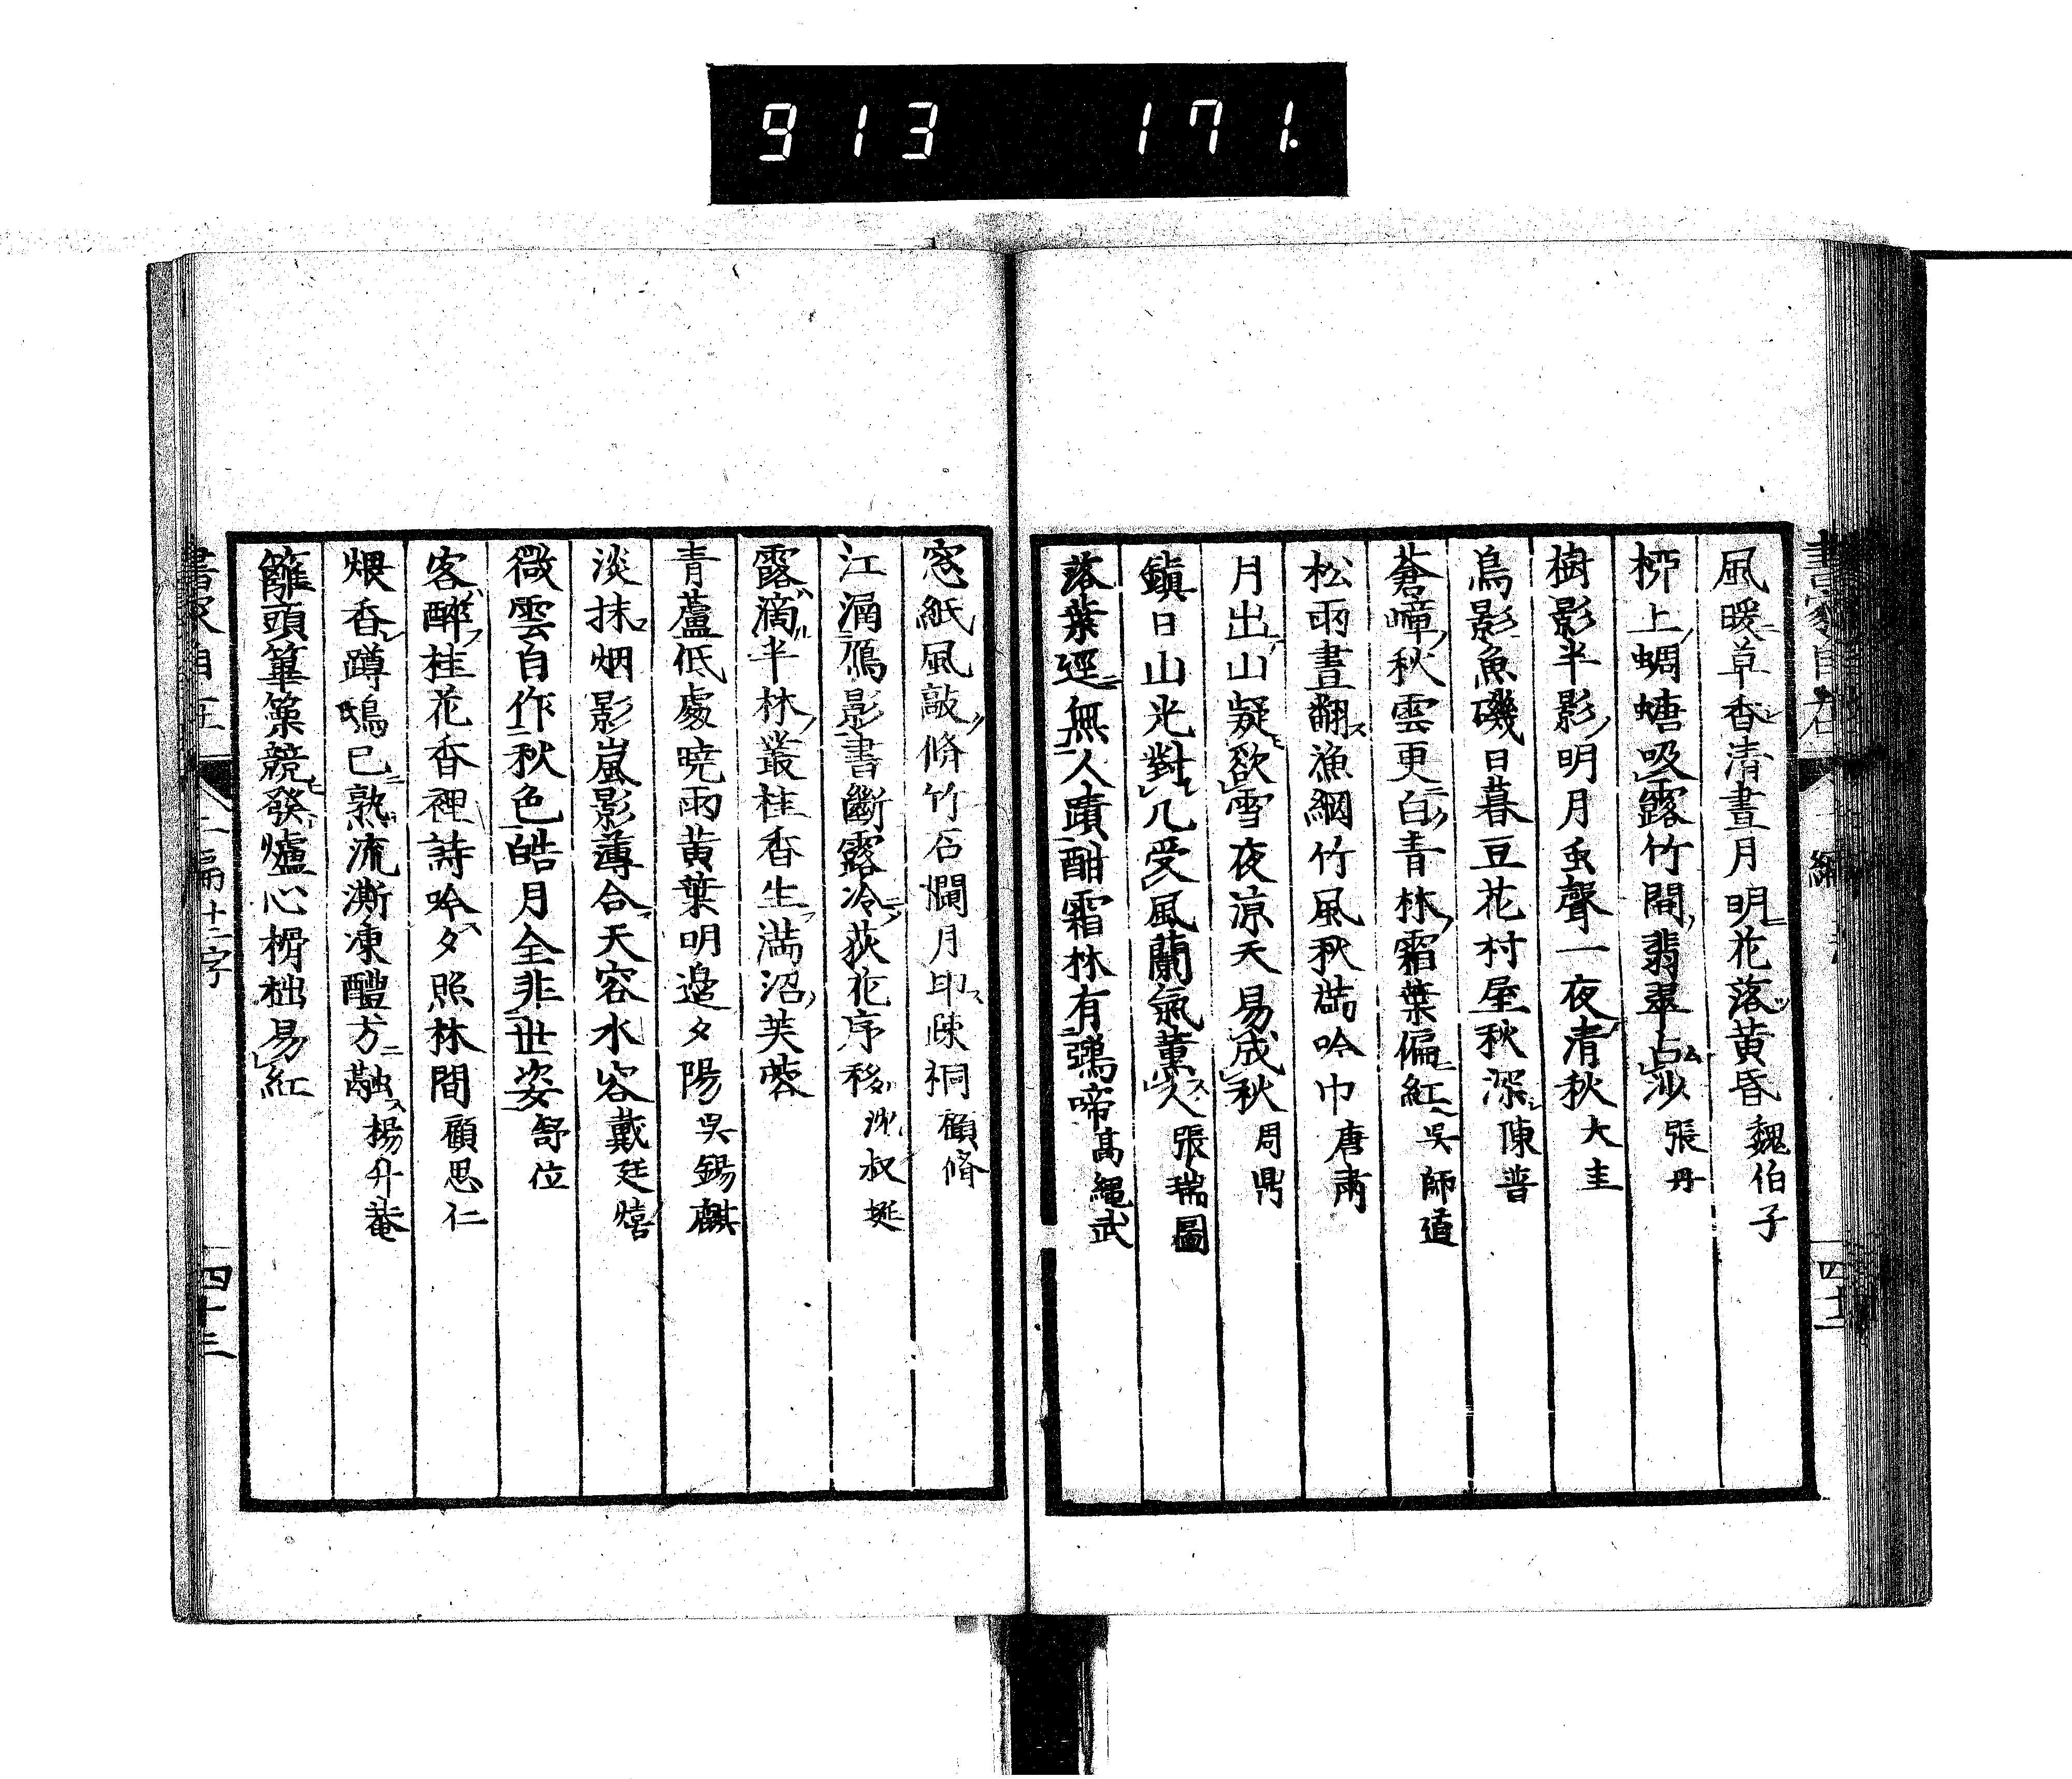 913 171.
風暖草香清晝月明花落黃昏 魏伯子
上蜩螗吸露竹間翡翠占沙 張丹
樹影半影明月虫聲一夜清秋 大圭
鳥影魚磯日暮豆花村屋秋深 陳普
蒼嶂秋雲更白青林霜葉偏紅 吳師道
松雨晝翻漁網竹風秋滿吟巾 唐肅
月出山疑欲雪夜涼天易成秋 周鼎
鎭日山光對几受風蘭氣薰人 張瑞圖
落葉逕無人蹟酣霜林有鵶啼 高繩武
窓紙風敲脩竹石闌月印踈桐 顧脩
江涵鴈影書斷露冷荻花序移 沈叔埏
露滴半林叢桂香生滿沼芙蓉
青蘆低處曉雨黃葉明邊夕陽 吳錫麒
淡抹烟影嵐影薄合天容水容 戴廷熺
微雲自作秋色皓月全非世姿 舒位
客醉桂花香裡詩吟夕照林間 顧思仁
煨香蹲鴟已熟流澌凍醴方融 楊升菴
籬頭篳篥競發爐心榾柮易紅
二編 十二字
四十三